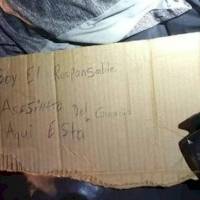 Soy El Responsable
Asesinato Del
Aqui Esta